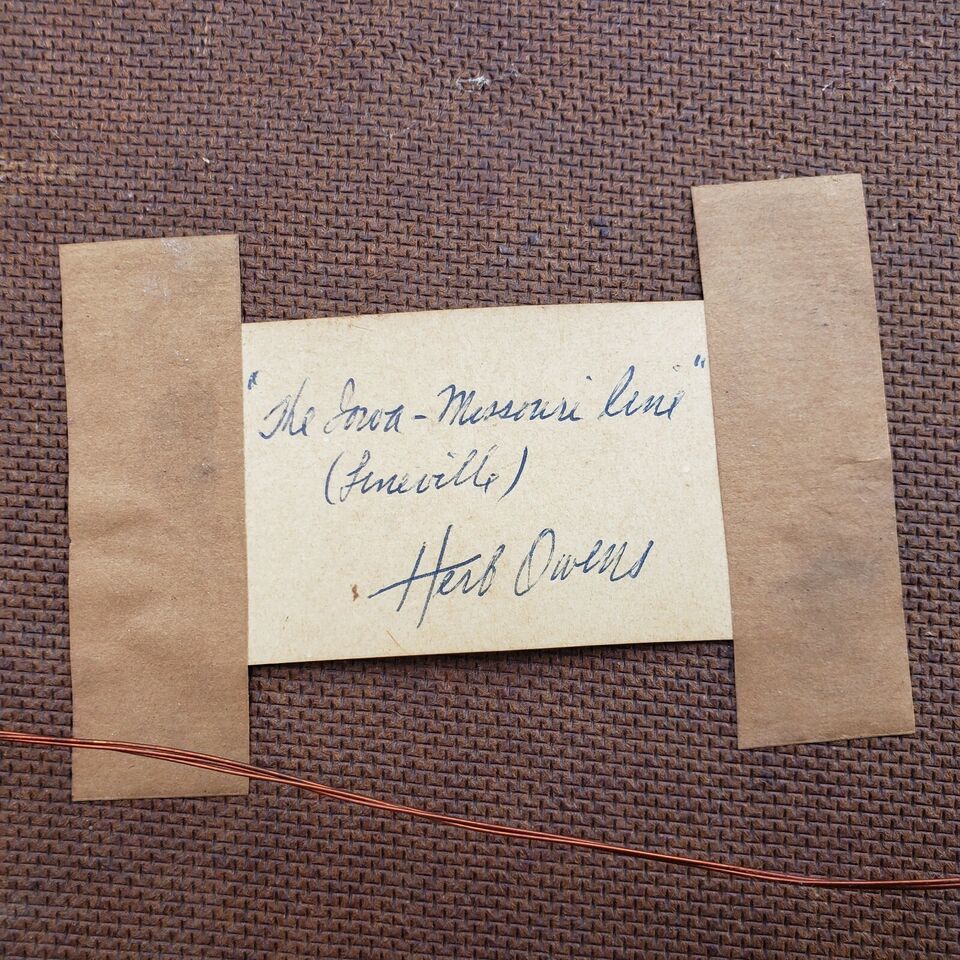 "The Iowa-Missouri line"
(Lineville)
Herb Owens